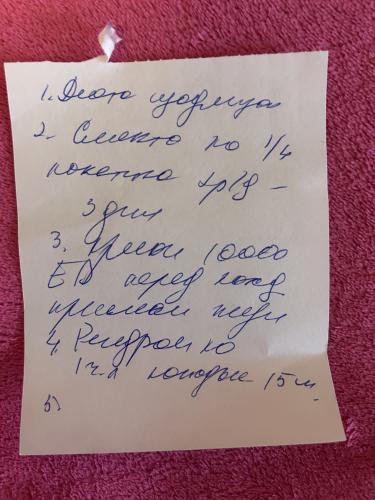 1. Диета щадящая
2. Смекта по 1/4
пакетика 4р/д –
3 дня
3. Креон 10000
ЕД перед кажд
приемом пищи
4. Регидрон по
1 ч.л каждые 15 м.
5)